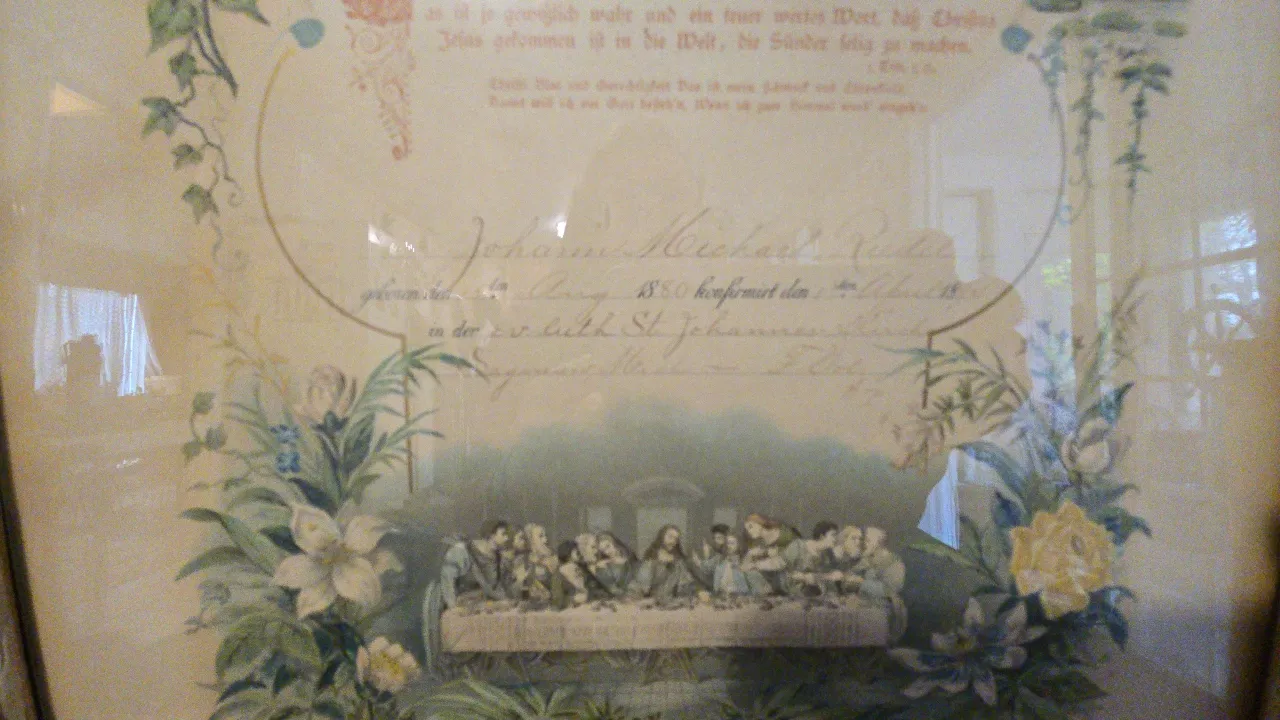 as ist je gewißlich wahr und ein teuer wertes Wort, daß Christus
Jesus gekommen ist in die Welt, die Sünder selig zu machen.
1. Tim. 1
Christi Blut und Gerechtigkeit Das ist mein Schmuck und Ehrenkleid.
Damit will ich vor Gott besteh'n, Wenn ich zum Himmel werd' eingeh'n.
Johann Michael
geboren den ten Aug 1880 konfirmirt den ten April 18
in der ev. luth St. Johannes
Mich